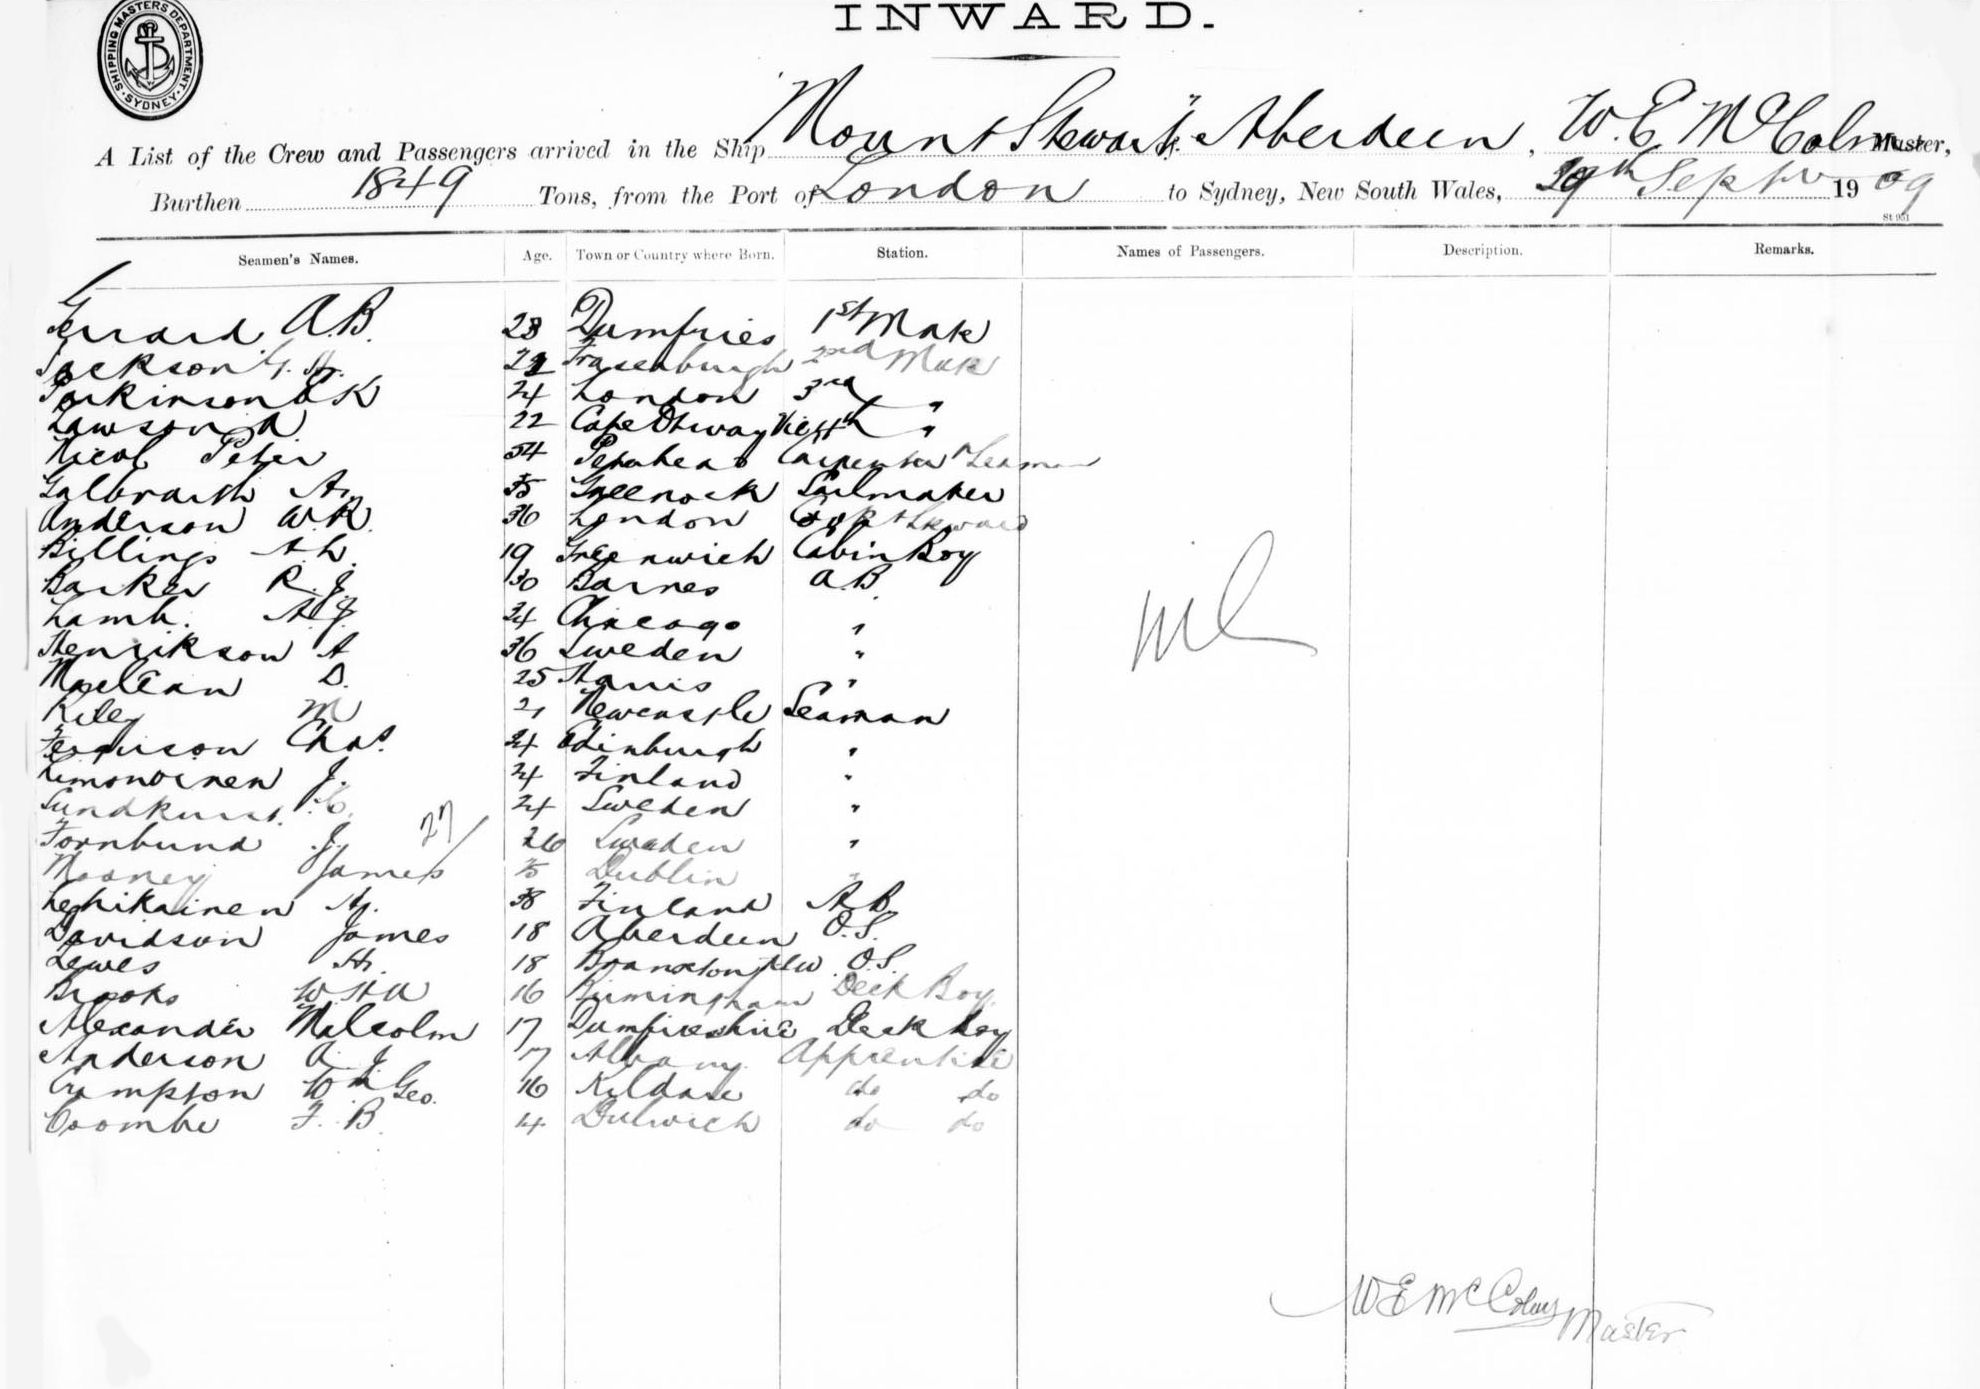 INWARD.
SHIPPING MASTERS DEPARTMENT. SYDNEY
A List of the Crew and Passengers arrived in the Ship "Mount Stewart" Aberdeen, W. E. McColm Master,
Burthen 1849 Tons, from the Port of London to Sydney, New South Wales, 29th Septr 1909
St 931
Seamen's Names. Age. Town or Country where Born. Station. Names of Passengers. Description. Remarks.
Gerrard A.B. 23 Dumfries 1st Mate
Jackson G. H. Fraserburgh 2nd Mate
Parkinson K 24 London 3rd "
Lawson A 22 Cape Otway Vic 4th "
Nicol Peter 54 Peterhead Carpenter Seaman
Galbraith A. 35 Greenock Sailmaker
Anderson W.R. 36 London Steward
Billings A.L. 19 Greenwich Cabin Boy
Barker R. J. 30 Barnes A.B.
Lamb. A J. 24 Chicago "
Henrikson A 36 Sweden "
Maclean D. 25 Harris "
Riley M 21 Newcastle Seaman
Ferguson Chas. 24 Edinburgh "
J. 24 Finland "
C. 24 Sweden "
27
J. 26 Sweden "
Mooney James Dublin "
Lehikainen H. 38 Finland A.B.
Davidson James 18 Aberdeen O.S.
Lewes H. 18 Branxton NSW O.S.
Brooks W.H.A 16 Birmingham Deck Boy.
Alexander Malcolm 17 Dumfriesshire Deck boy
Anderson A. J. 17 Albany. Apprentice
Crampton Wm Geo. 16 Kildare do do
Coombe F. B. Dulwich do do
nil
W E McColm Master